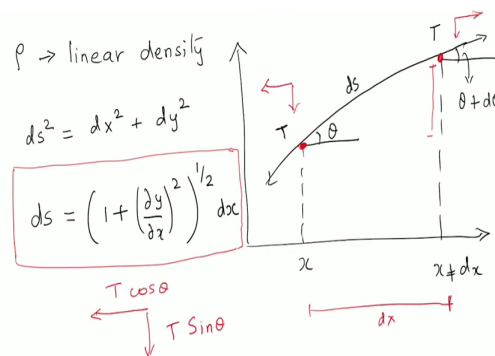 ρ → linear density
ds² = dx² + dy²
ds = (1 + (∂y/∂x)²)^1/2 dx
T cosθ
T Sinθ
T
ds
T
θ
θ + dθ
x
x + dx
dx